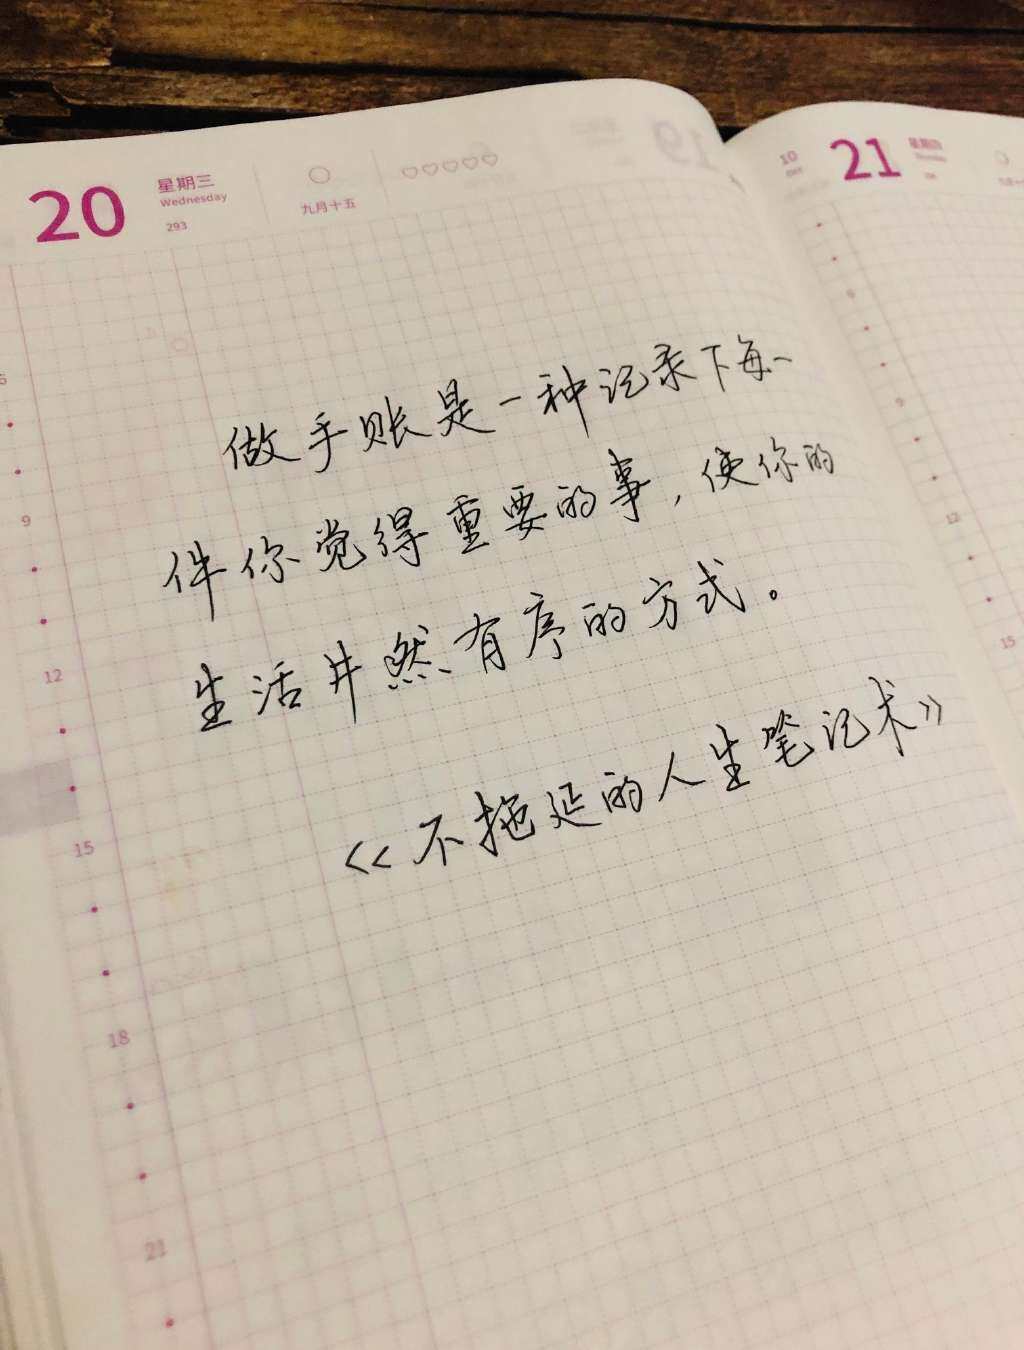 20 星期三 九月十五
Wednesday
293
10 21
做手账是一种记录下每一
件你觉得重要的事，使你的
生活井然有序的方式。
《不拖延的人生笔记术》
9
12
15
18
21
9
12
15